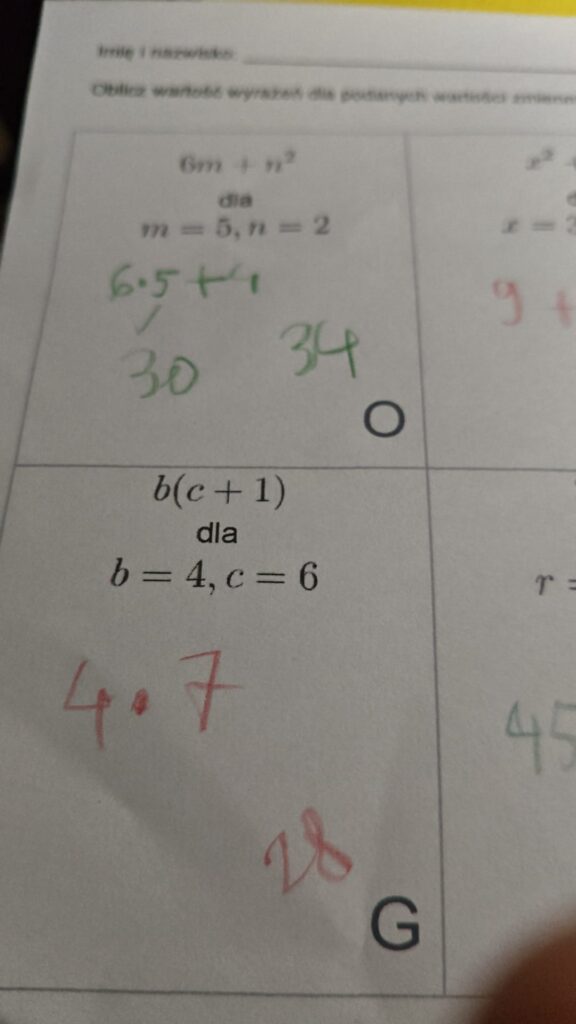 Imię i nazwisko
Oblicz wartość wyrażeń dla podanych wartości
6m + n²
dla
m = 5, n = 2
6·5 + 4
30
34
O
x²
x =
9 +
b(c + 1)
dla
b = 4, c = 6
4 · 7
28
G
r =
45